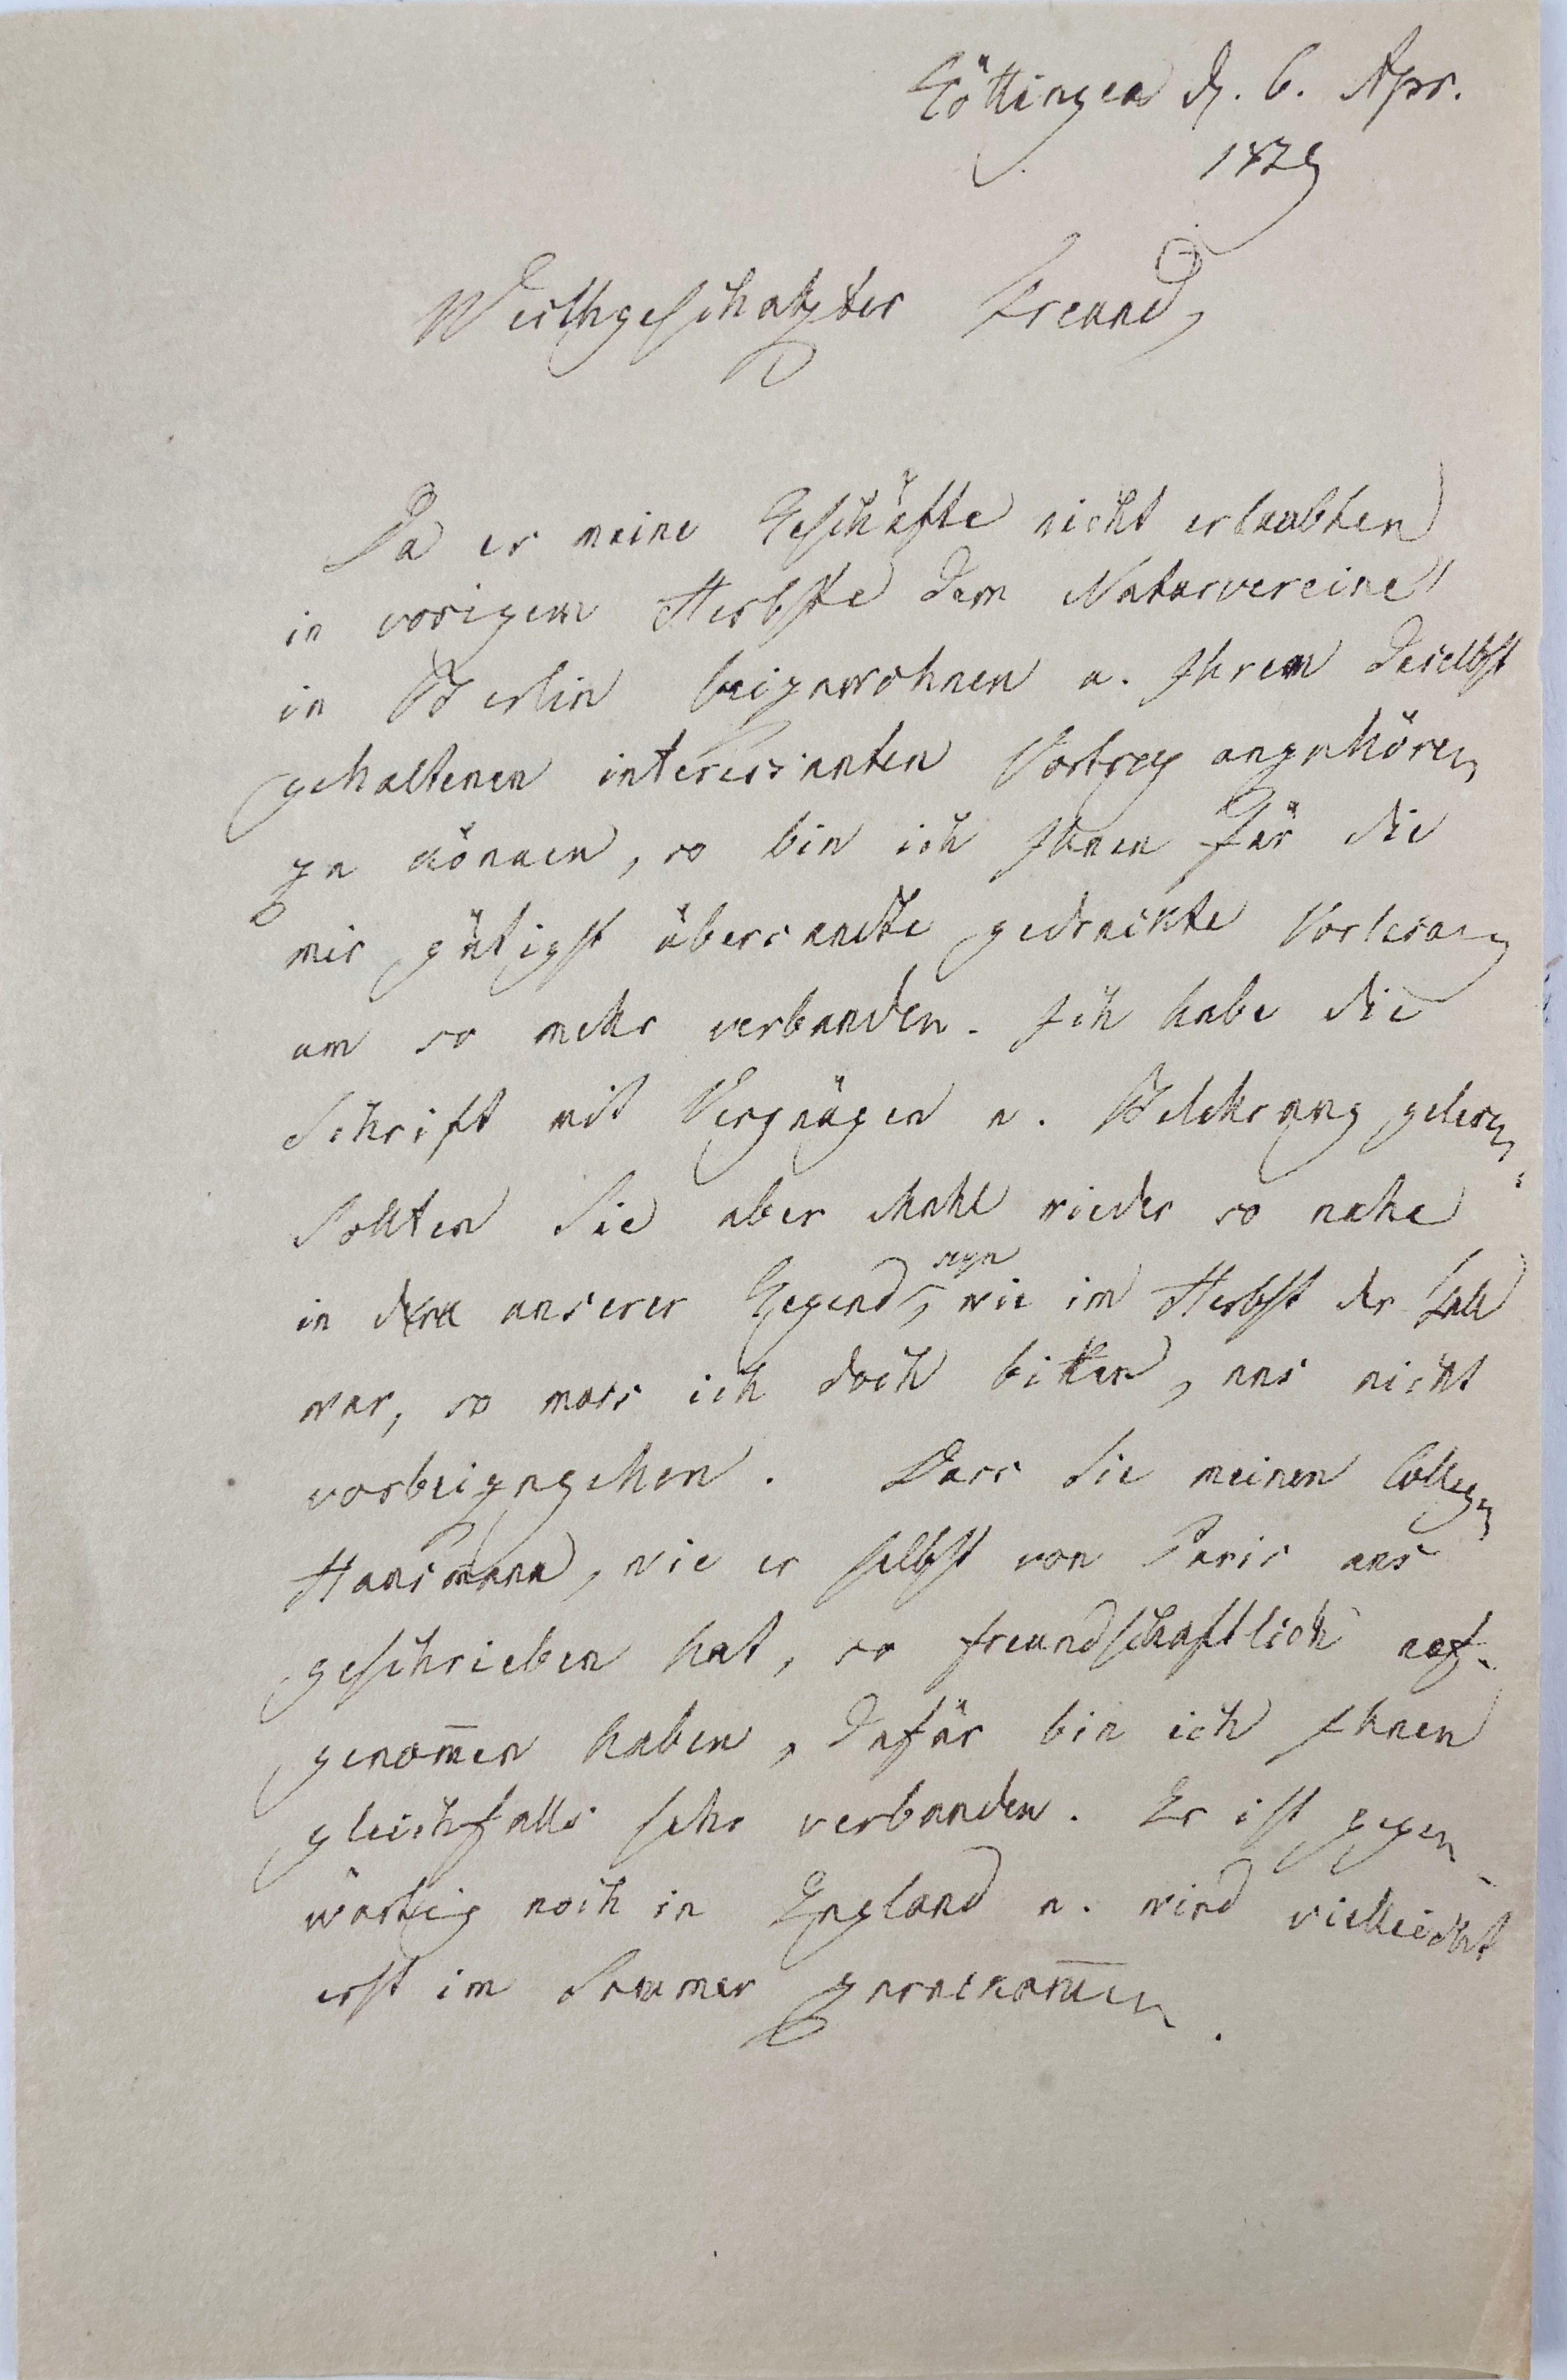 Göttingen d. 6. Apr.
1829
Werthgeschätzter Freund,
Da es meine Geschäfte nicht erlaubten
in vorigem Herbste dem Naturvereine
in Berlin beizuwohnen u. Ihrem daselbst
gehaltenen interessanten Vortrag anzuhören
zu können, so bin ich Ihnen für die
mir gütigst übersandte gedruckte Vorlesung
um so mehr verbunden. Ich habe die
Schrift mit Vergnügen u. Belehrung gelesen.
Sollten Sie aber Mahl wieder so nahe
in unserer Gegend seyn, wie im Herbst der Fall
war, so muss ich doch bitten, uns nicht
vorbeizugehen. Dass Sie meinen Collegen
Hausmann, wie er selbst von Paris aus
geschrieben hat, so freundschaftlich auf-
genom̅en haben, dafür bin ich Ihnen
gleichfalls sehr verbunden. Er ist gegen-
wärtig noch in England u. wird vielleicht
erst im Sommer zurückkom̅en.